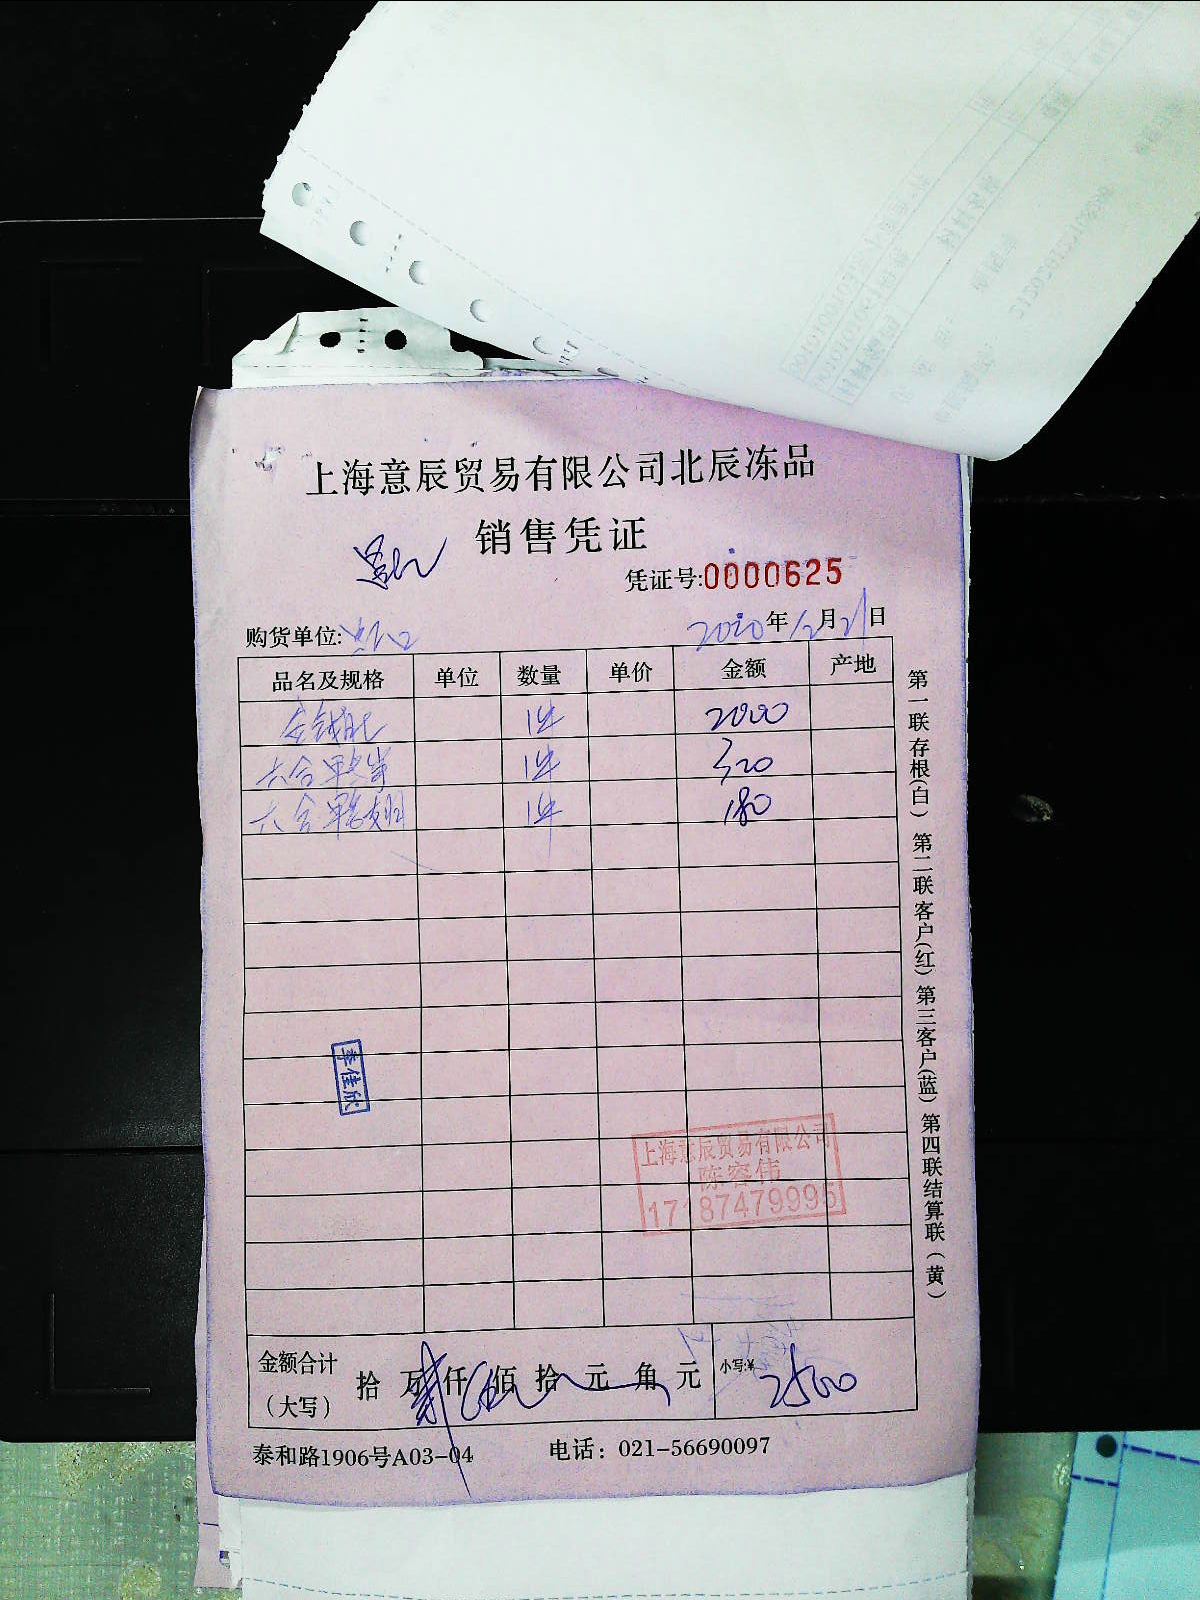 上海意辰贸易有限公司北辰冻品
销售凭证
凭证号:0000625
购货单位:
2020年12月21日
品名及规格 单位 数量 单价 金额 产地
金钱肚 1件 2000
六合 1件 320
六合 1件 180
李佳欣
上海意辰贸易有限公司
陈容伟
17187479995
金额合计
(大写)
拾 万 仟 佰 拾 元 角 元 小写:¥ 2500
泰和路1906号A03-04 电话：021-56690097
第一联存根(白) 第二联客户(红) 第三客户(蓝) 第四联结算联(黄)